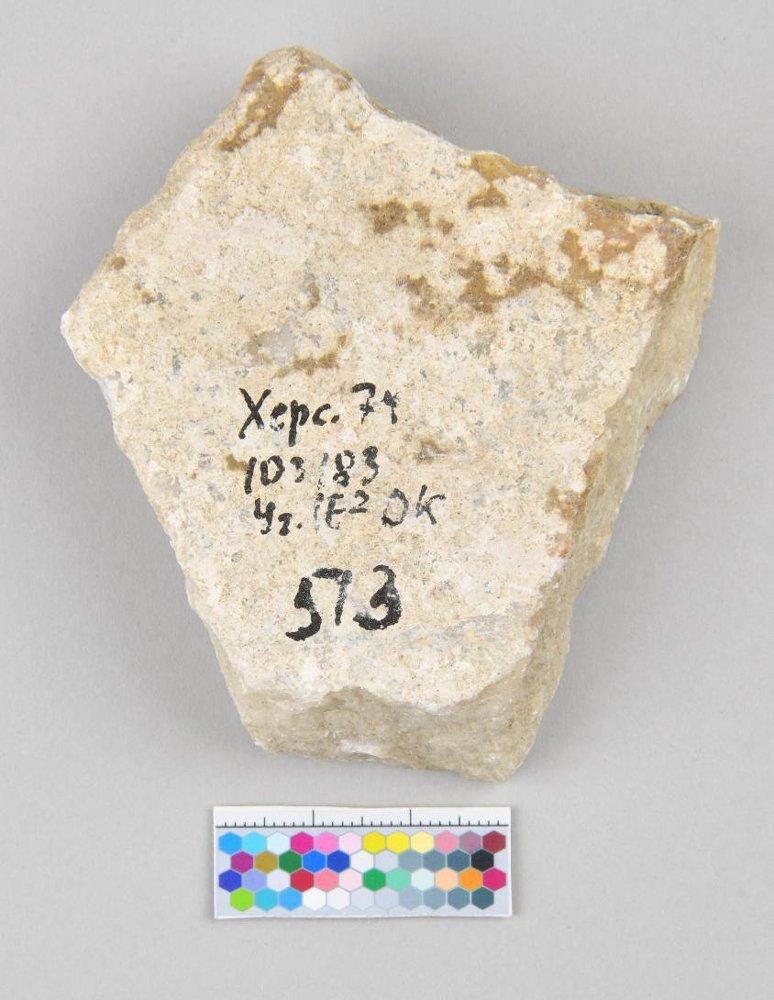 Херс. 74
103/83
Уг. IE² ОК
573